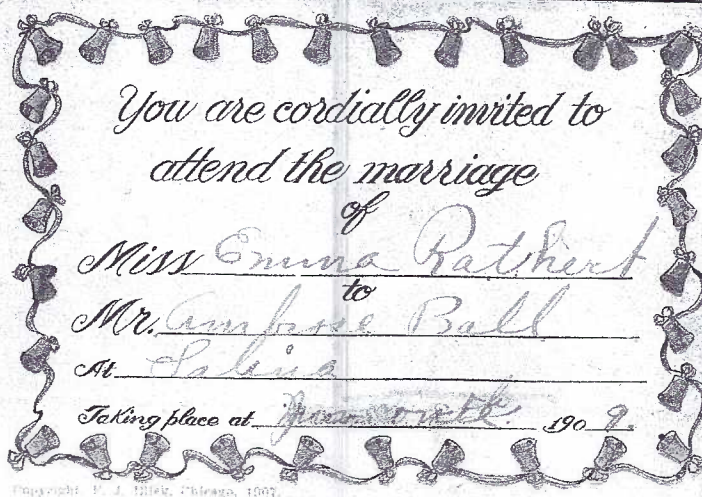 You are cordially invited to
attend the marriage
of
Miss Emma Rathert
to
Mr. Ambrose Ball
At Salina
Taking place at 190 9.
Copyright, Chicago, 1907.